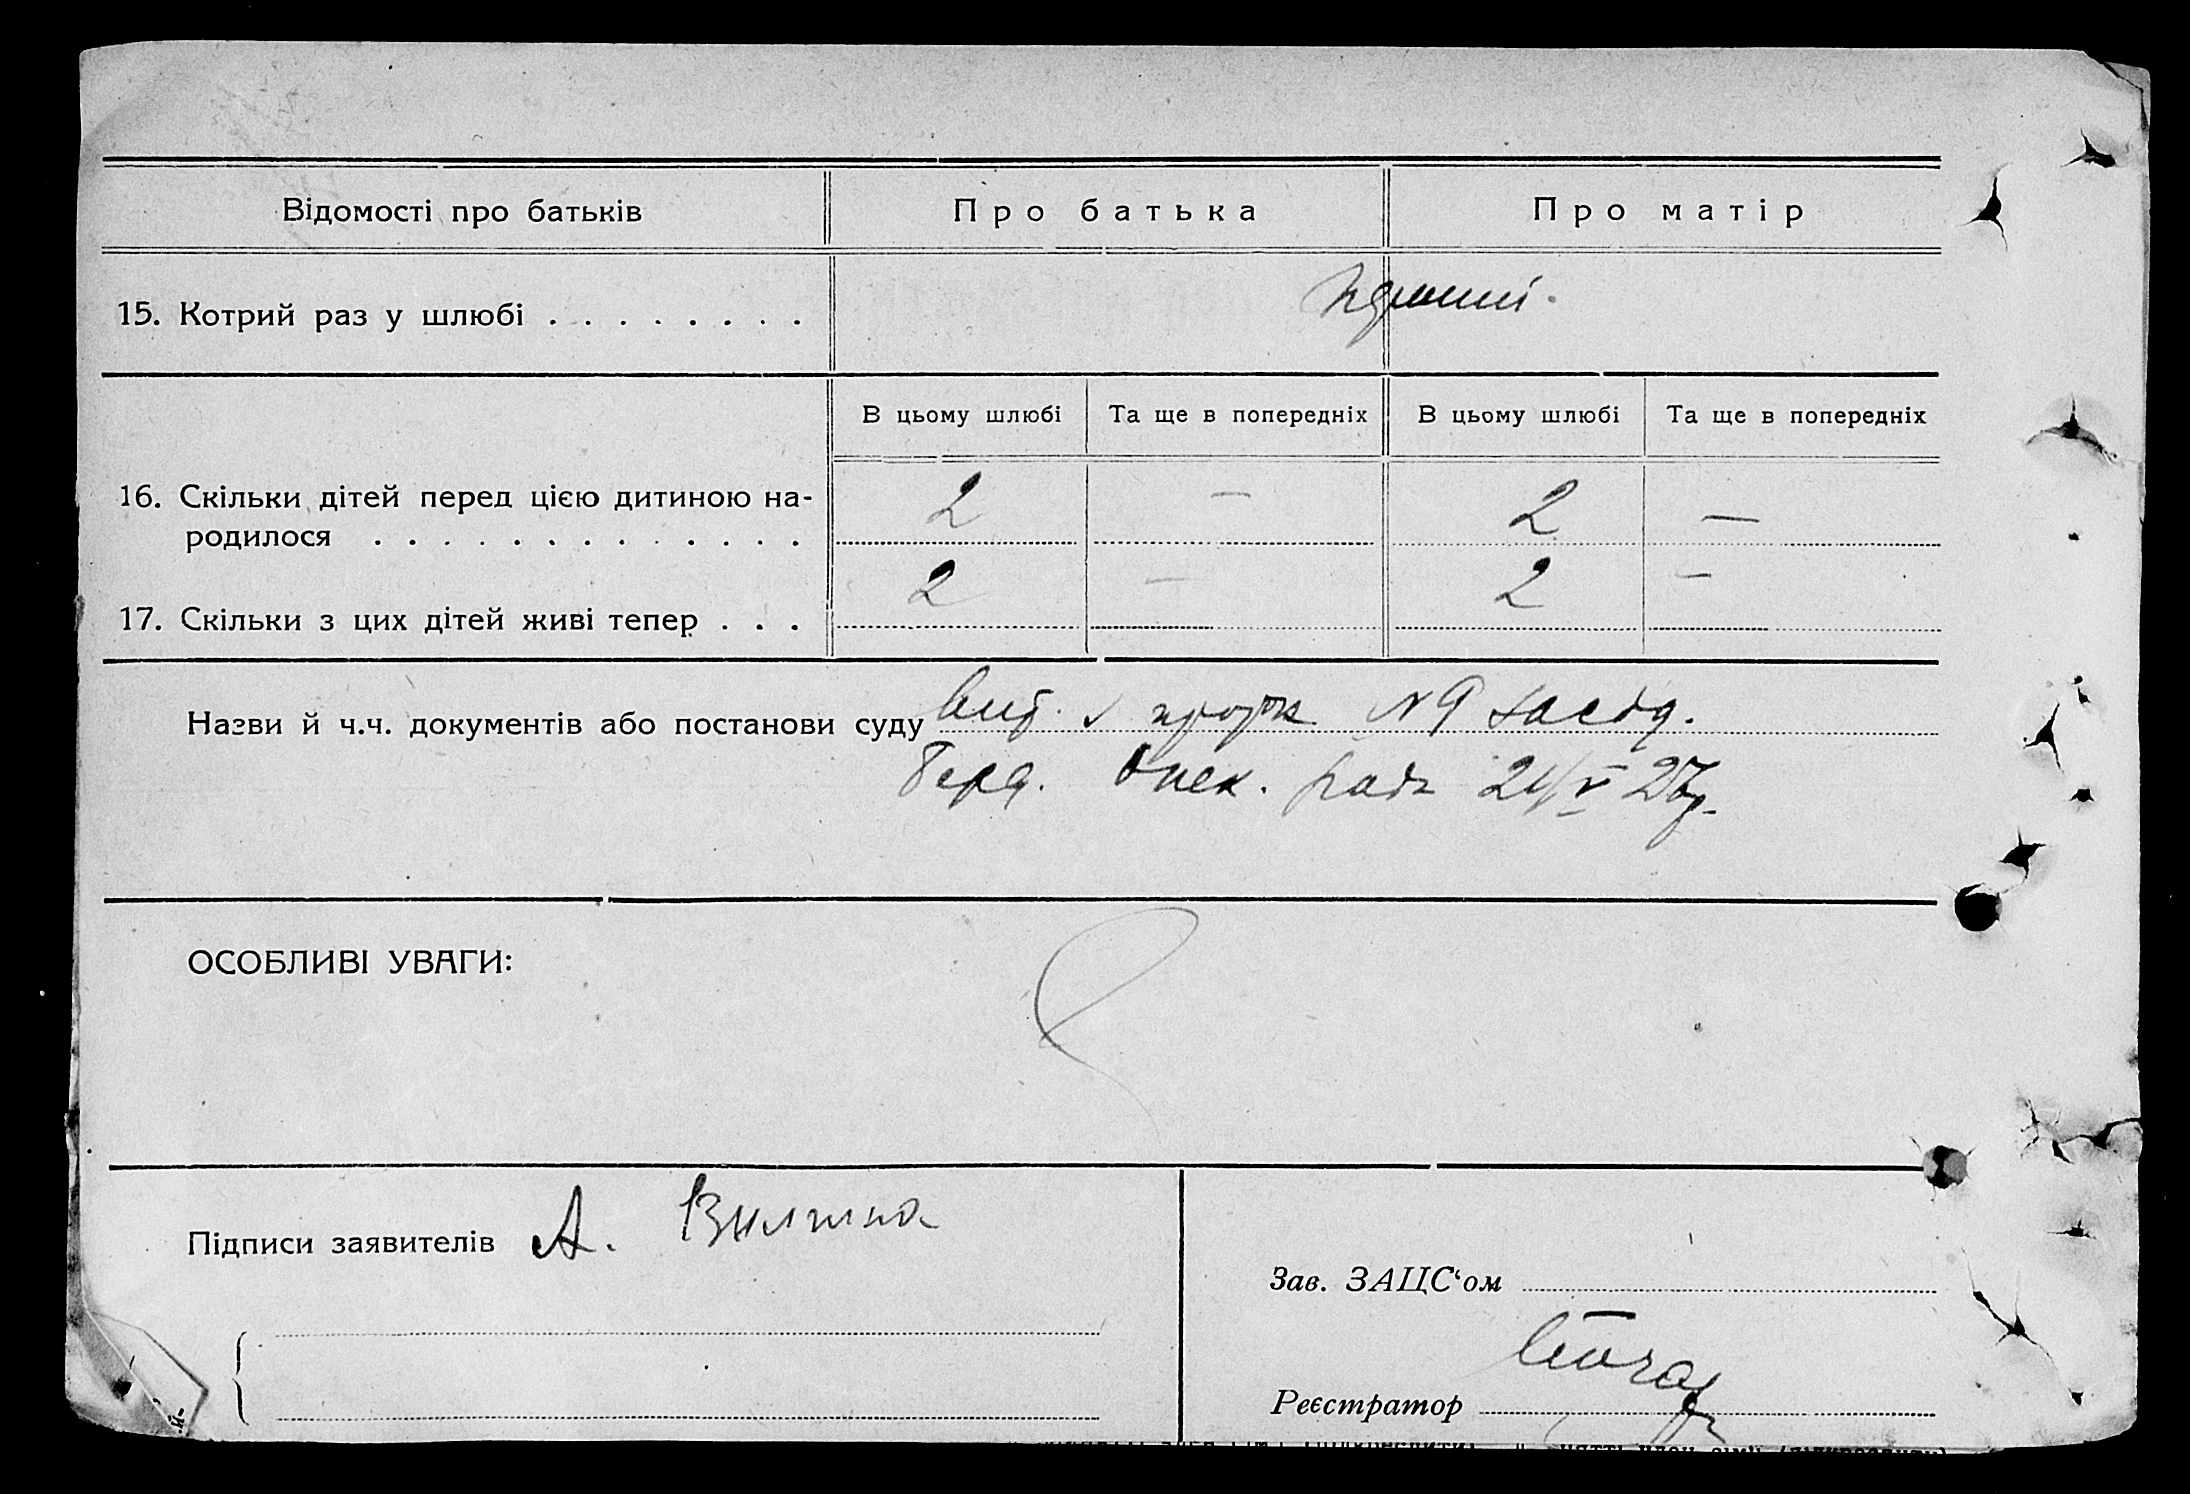 Відомості про батьків
Про батька
Про матір
15. Котрий раз у шлюбі . . . . . . . .
В цьому шлюбі
Та ще в попередніх
В цьому шлюбі
Та ще в попередніх
16. Скільки дітей перед цією дитиною на-
родилося . . . . . . . . . . . . .
2 — 2 —
17. Скільки з цих дітей живі тепер . . .
2 — 2 —
Назви й ч.ч. документів або постанови суду Вит. з прот. №9 засід.
Опек. ради 21/V 27р.
ОСОБЛИВІ УВАГИ:
Підписи заявителів А.
Зав. ЗАЦС‘ом
Реєстратор